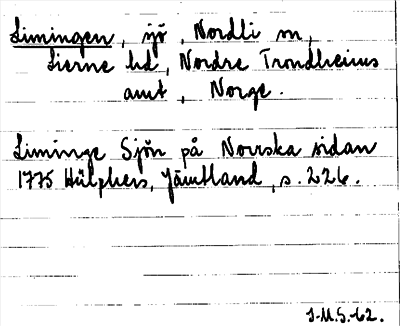 Limingen, sjö, Nordli sn,
Lierne hd, Nordre Trondheims
amt, Norge.
Liminge Sjön på Norrska sidan
1775 Hülphers, Jämtland, s. 226.
J-M.S.-62.